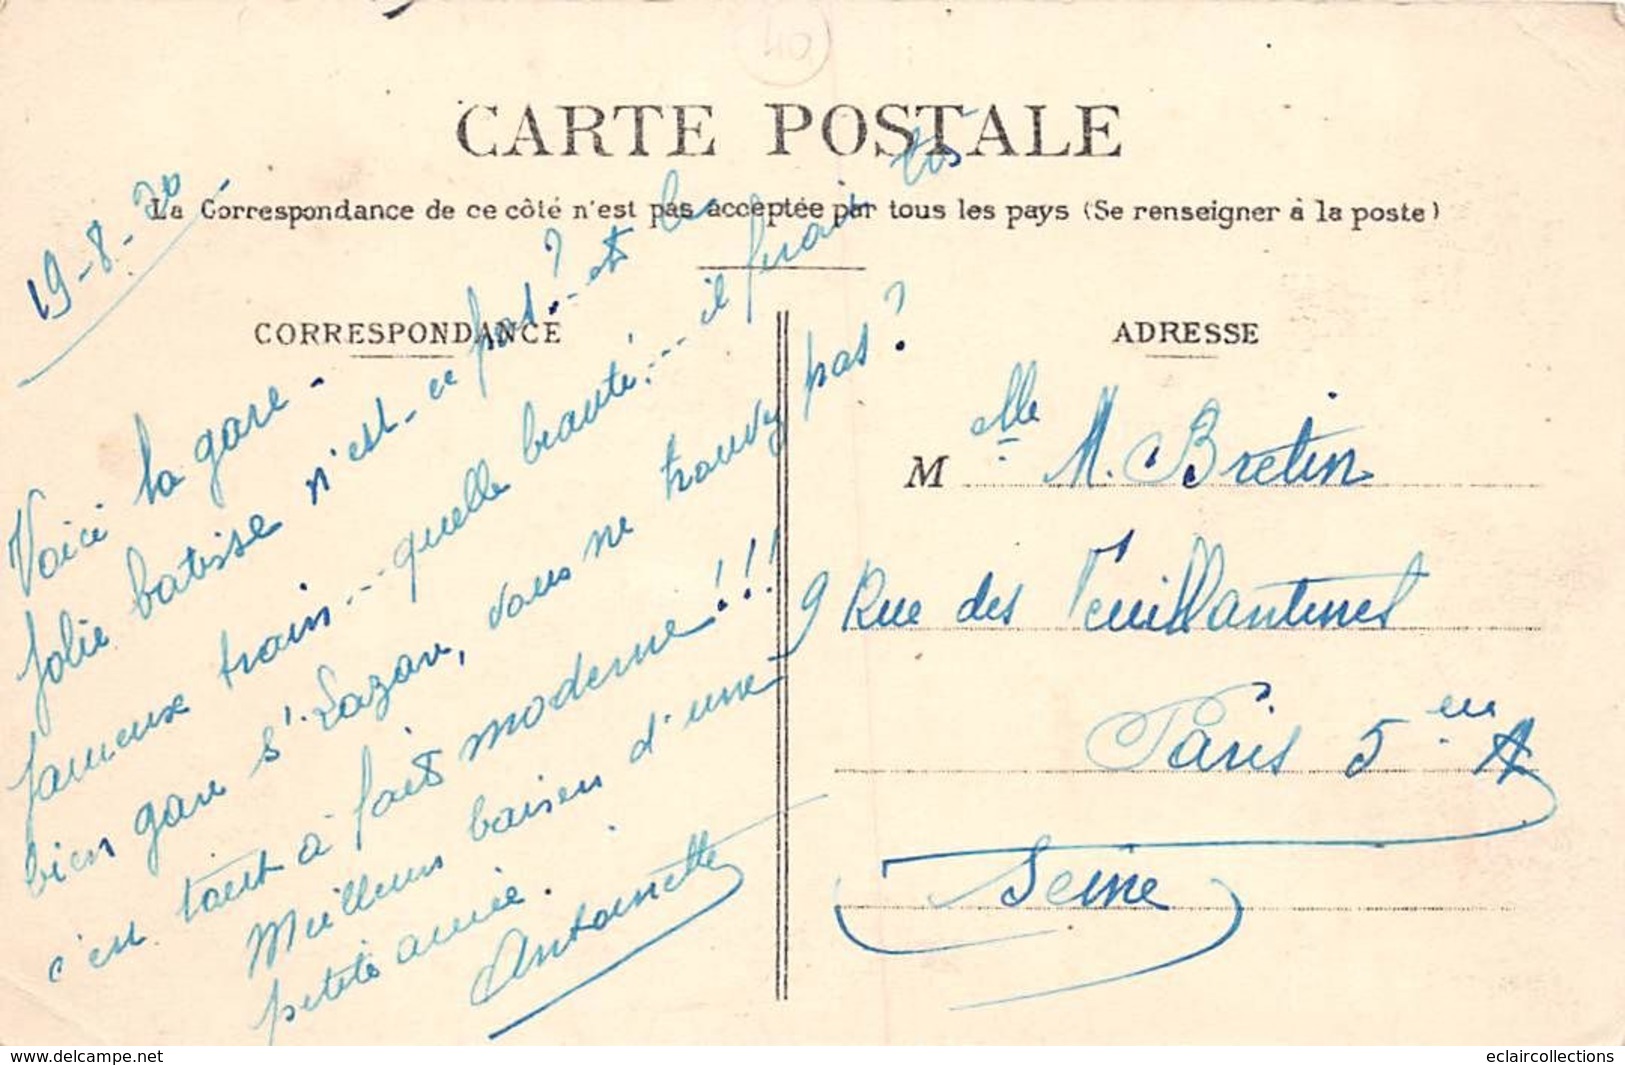 CARTE POSTALE
La Correspondance de ce côté n'est pas acceptée par tous les pays (Se renseigner à la poste)
CORRESPONDANCE
19-8-30
Voici la gare -
jolie batisse n'est-ce pas? - et le
fameux train... quelle beauté... il ferait très
bien gare St. Lazare, vous ne trouvez pas?
c'est tout à fait moderne!!!
Meilleurs baisers d'une
petite amie.
Antoinette
ADRESSE
Melle M. Bretin
9 Rue des Feuillantines
Paris 5em A
Seine
www.delcampe.net
eclaircollections